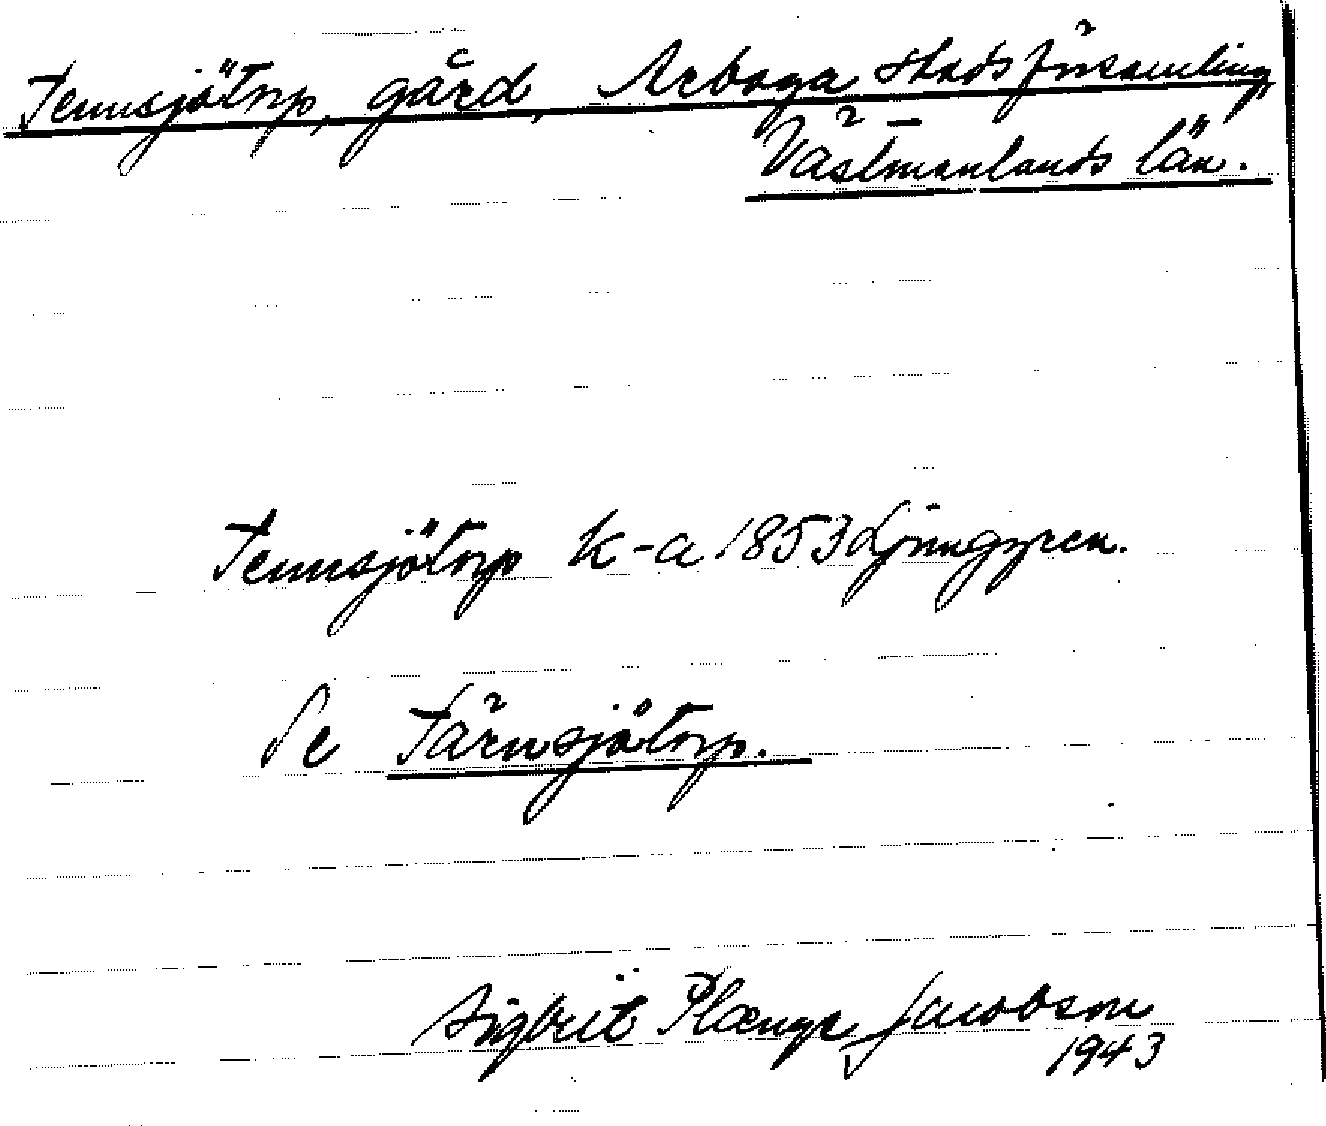 Tennsjötorp, gård, Arboga stadsförsamling,
Västmanlands län.
Tennsjötorp k-a 1853 Ljunggren.
Se Tärnsjötorp.
Sigbrit Plænge Jacobson
1943